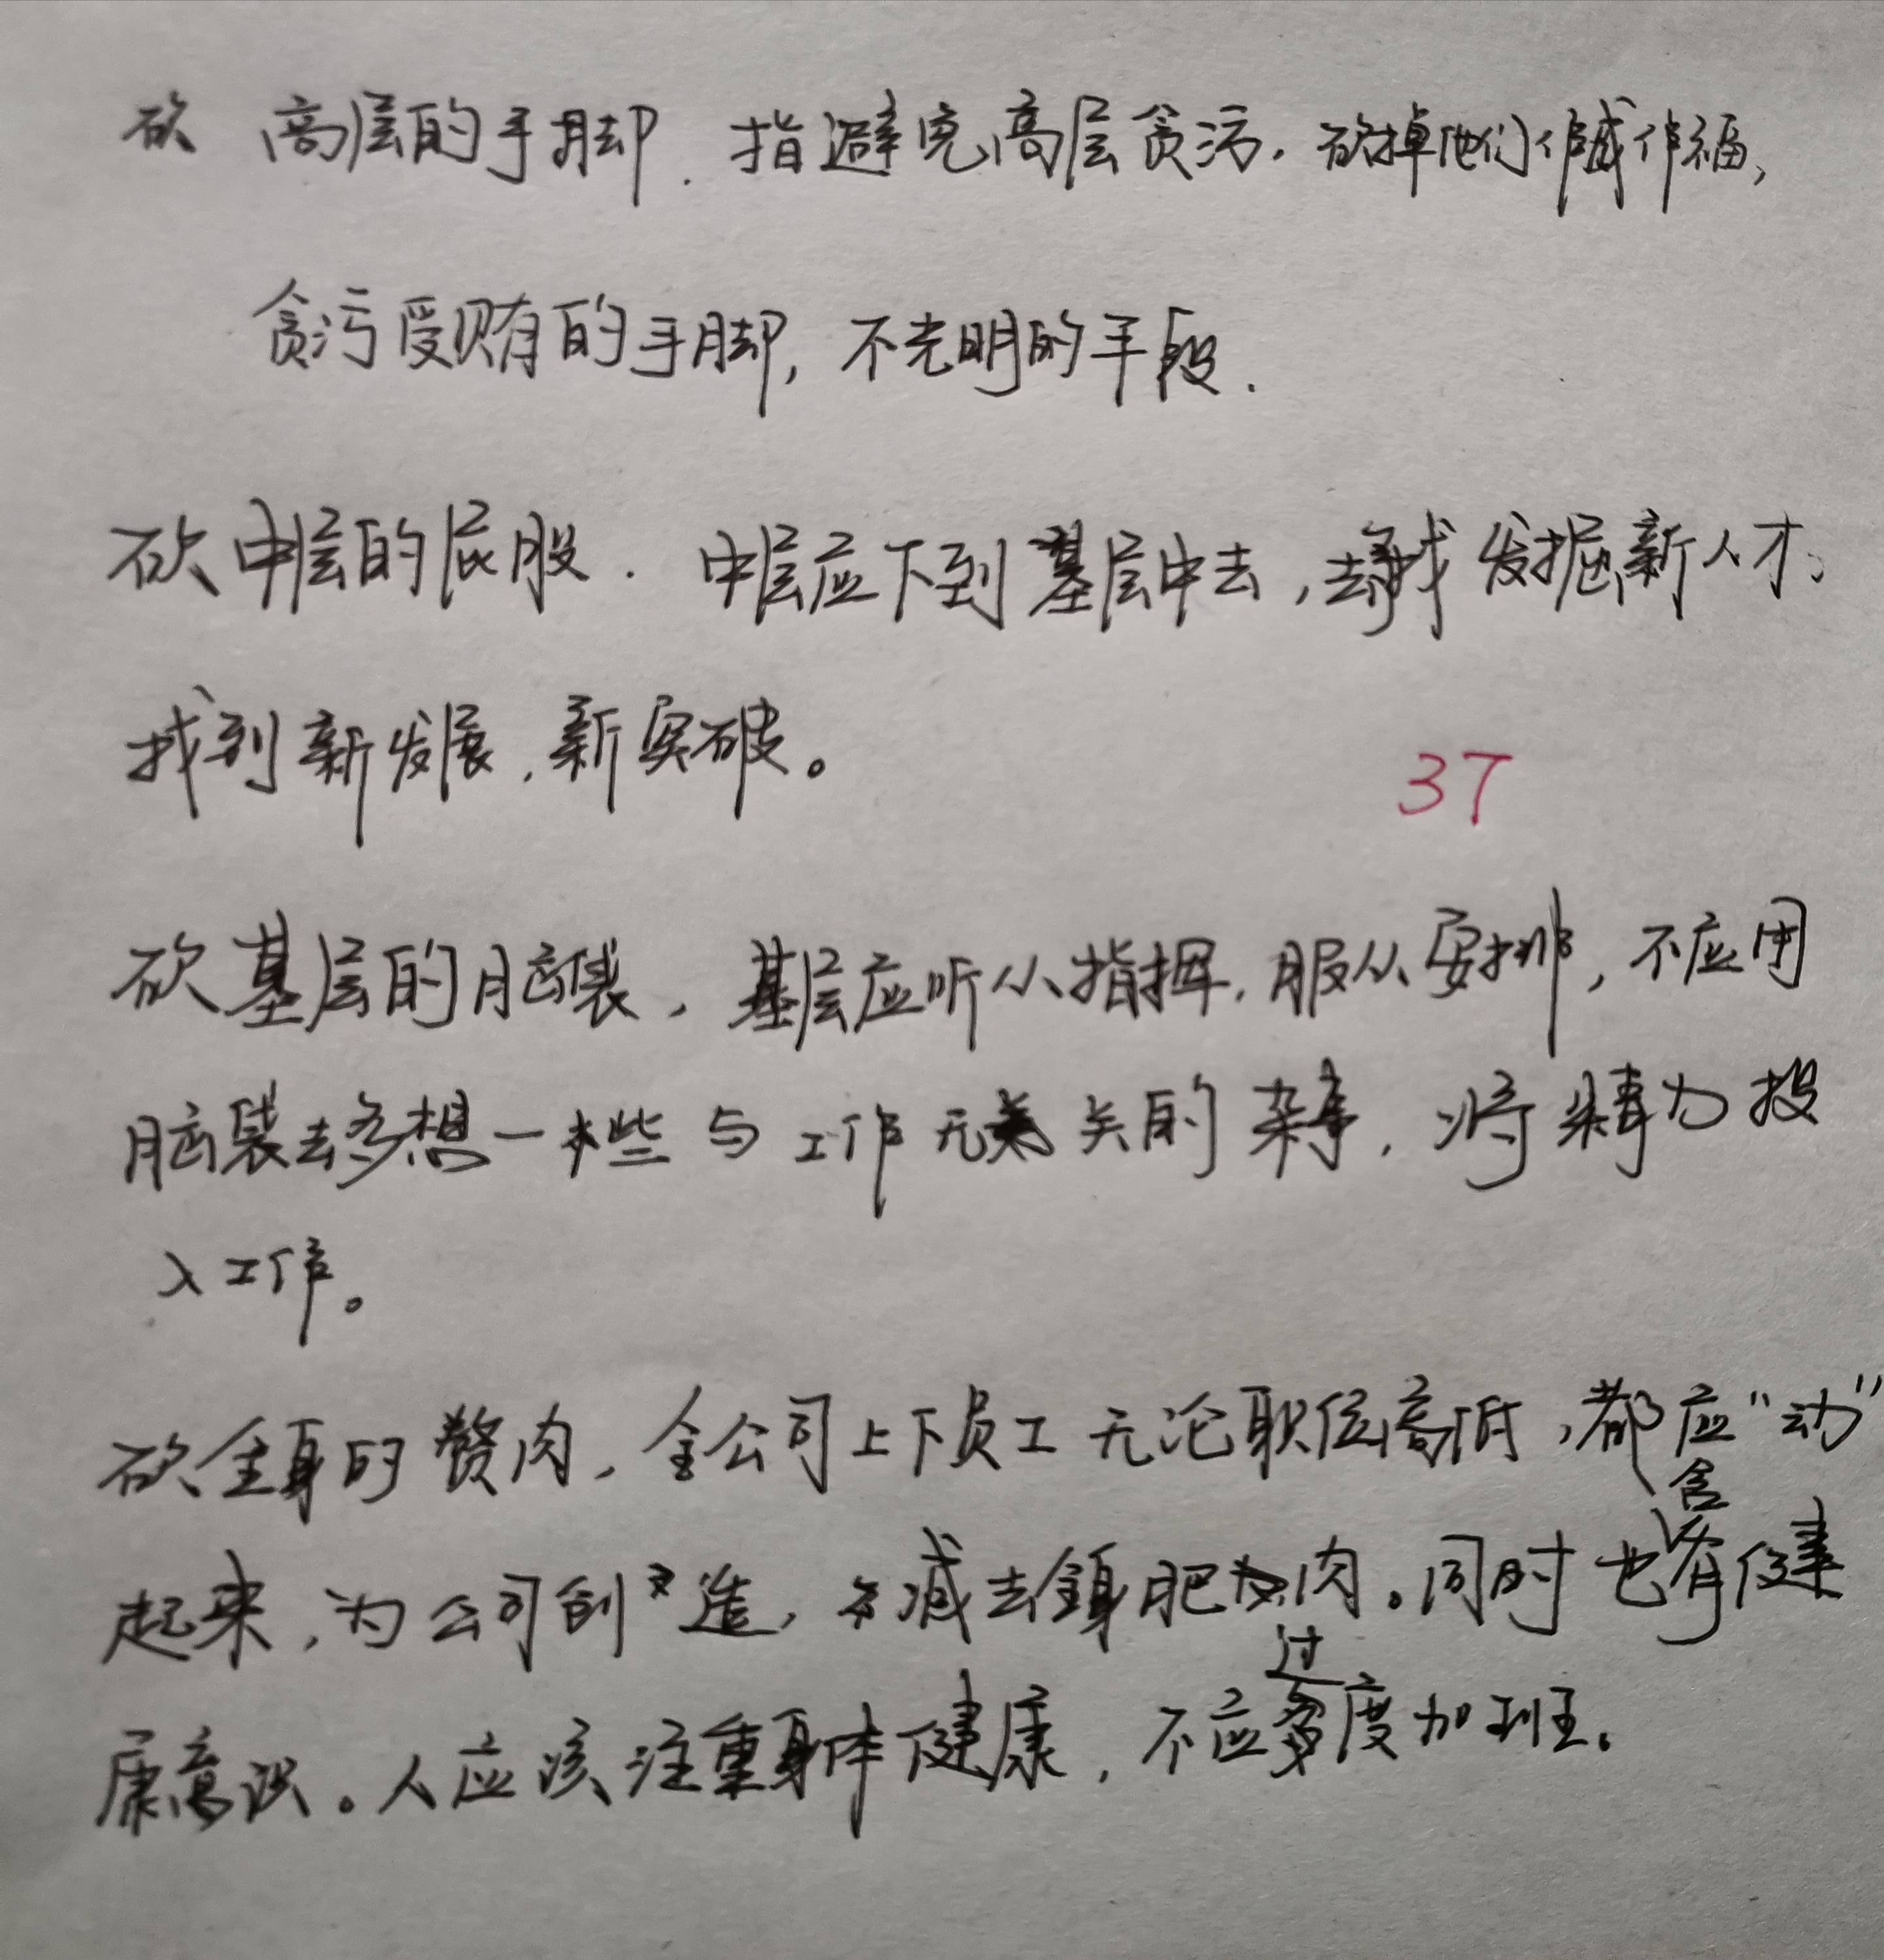 砍 高层的手脚. 指避免高层贪污. 砍掉他们作威作福,
贪污受贿的手脚, 不光明的手段.
砍中层的屁股. 中层应下到基层中去, 去寻找 发掘新人才、
找到新发展, 新突破。
37
砍基层的脑袋, 基层应听从指挥, 服从安排, 不应用
脑袋去多想一些与工作无关的杂事, 将精力投
入工作。
砍全身的赘肉, 全公司上下员工无论职位高低, 都应“动”
起来, 为公司创造, 减去全身肥肉。同时也含有健
康意识。人应该注重身体健康, 不应过度加班.